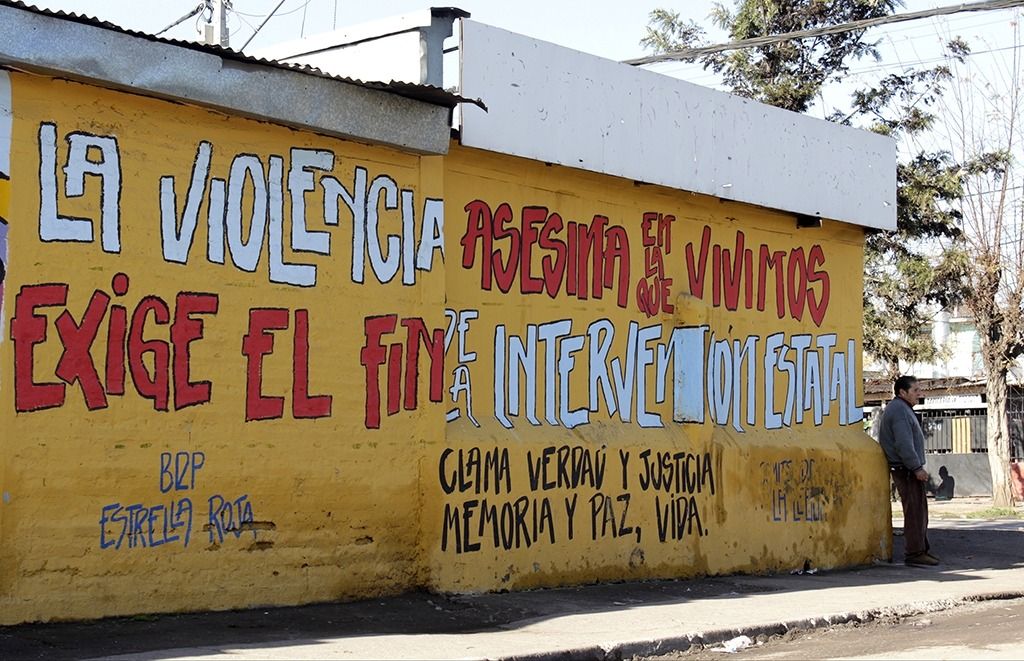 LA VIOLENCIA ASESINA EN LA QUE VIVIMOS
EXIGE EL FIN DE LA INTERVENCION ESTATAL
CLAMA VERDAD Y JUSTICIA
MEMORIA Y PAZ, VIDA.
BRP
ESTRELLA ROJA
LA